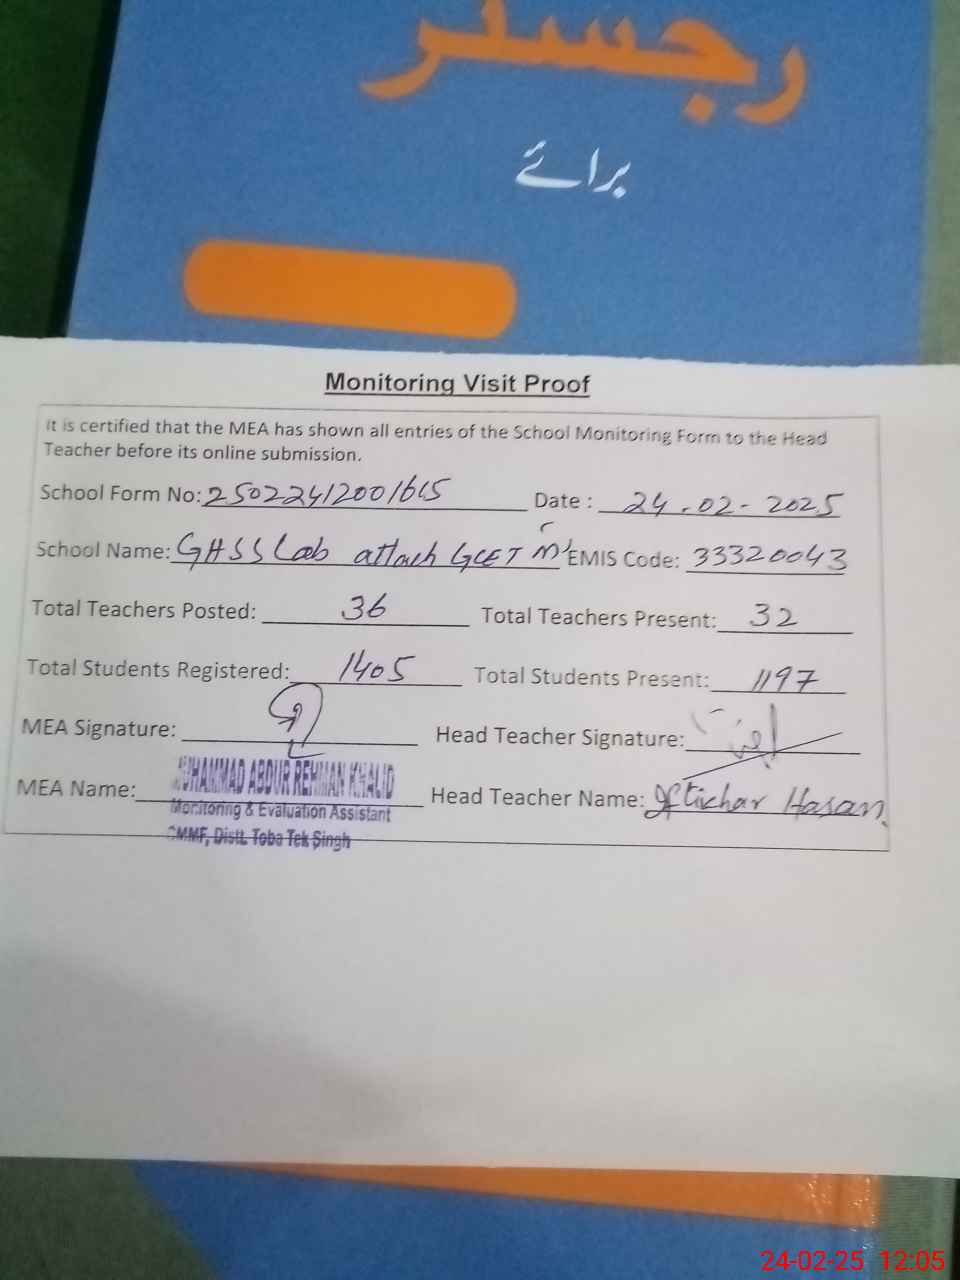 رجسٹر
برائے
Monitoring Visit Proof
It is certified that the MEA has shown all entries of the School Monitoring Form to the Head
Teacher before its online submission.
School Form No: Date : 24-02-2025
School Name: GHSS Lab attach GCET EMIS Code: 33320043
Total Teachers Posted: 36 Total Teachers Present: 32
Total Students Registered: 1405 Total Students Present: 1197
MEA Signature: Head Teacher Signature:
MEA Name: MUHAMMAD ABDUR REHMAN KHALID Head Teacher Name: Iftichar Hasan
Monitoring & Evaluation Assistant
CMMF, Distt. Toba Tek Singh
24-02-25 12:05